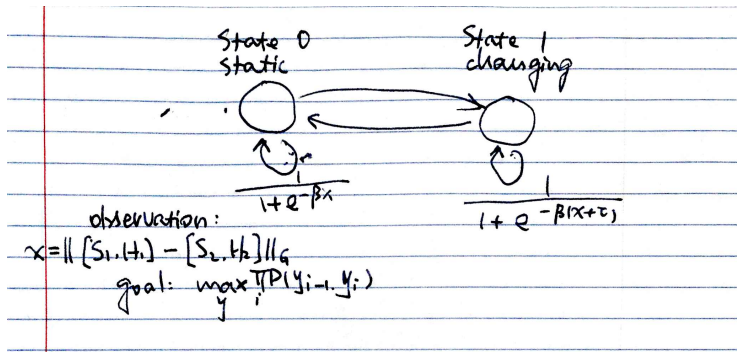 State 0 State 1
static changing
1
1 + e^-βx
1
1 + e^-β(x+τ)
observation:
x = || [S₁, H₁] - [S₂, H₂] ||_G
goal: max_y ∏_i P(y_i-1, y_i)